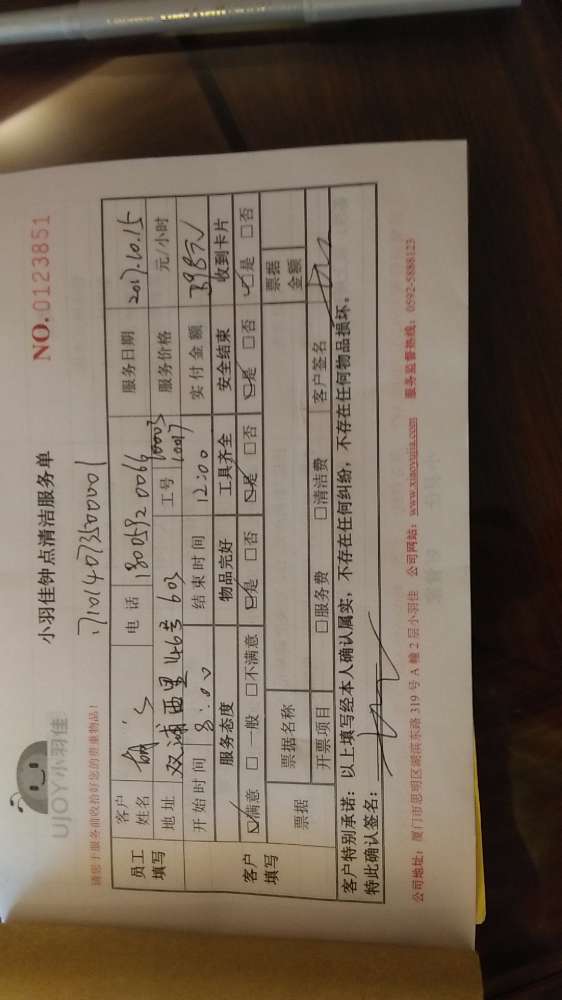 UJOY小羽佳
小羽佳钟点清洁服务单
NO.0123851
请您于服务前收拾好您的贵重物品!
1710140735000001
员工填写 客户姓名 电话 18005920066 服务日期 2017.10.15
地址 双浦西里46号603 工号 10003 10017 服务价格 元/小时
客户填写 开始时间 8:00 结束时间 12:00 实付金额 398元
服务态度 物品完好 工具齐全 安全结束 收到卡片
☑满意 □一般 □不满意 ☑是 □否 ☑是 □否 ☑是 □否 ☑是 □否
票据 票据名称 票据金额
开票项目 □服务费 □清洁费 客户签名
客户特别承诺:以上填写经本人确认属实,不存在任何纠纷,不存在任何物品损坏。
特此确认签名:
公司地址:厦门市思明区湖滨东路319号A幢2层小羽佳 公司网站:www.xiaoyujia.com 服务监督热线:0592-5888123